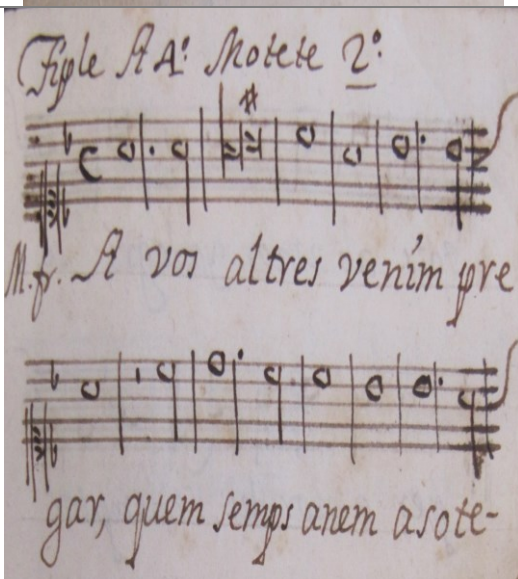 Tiple A 4º Motete 2º
M.fr. A vos altres venim pre
gar, quem semps anem asote-